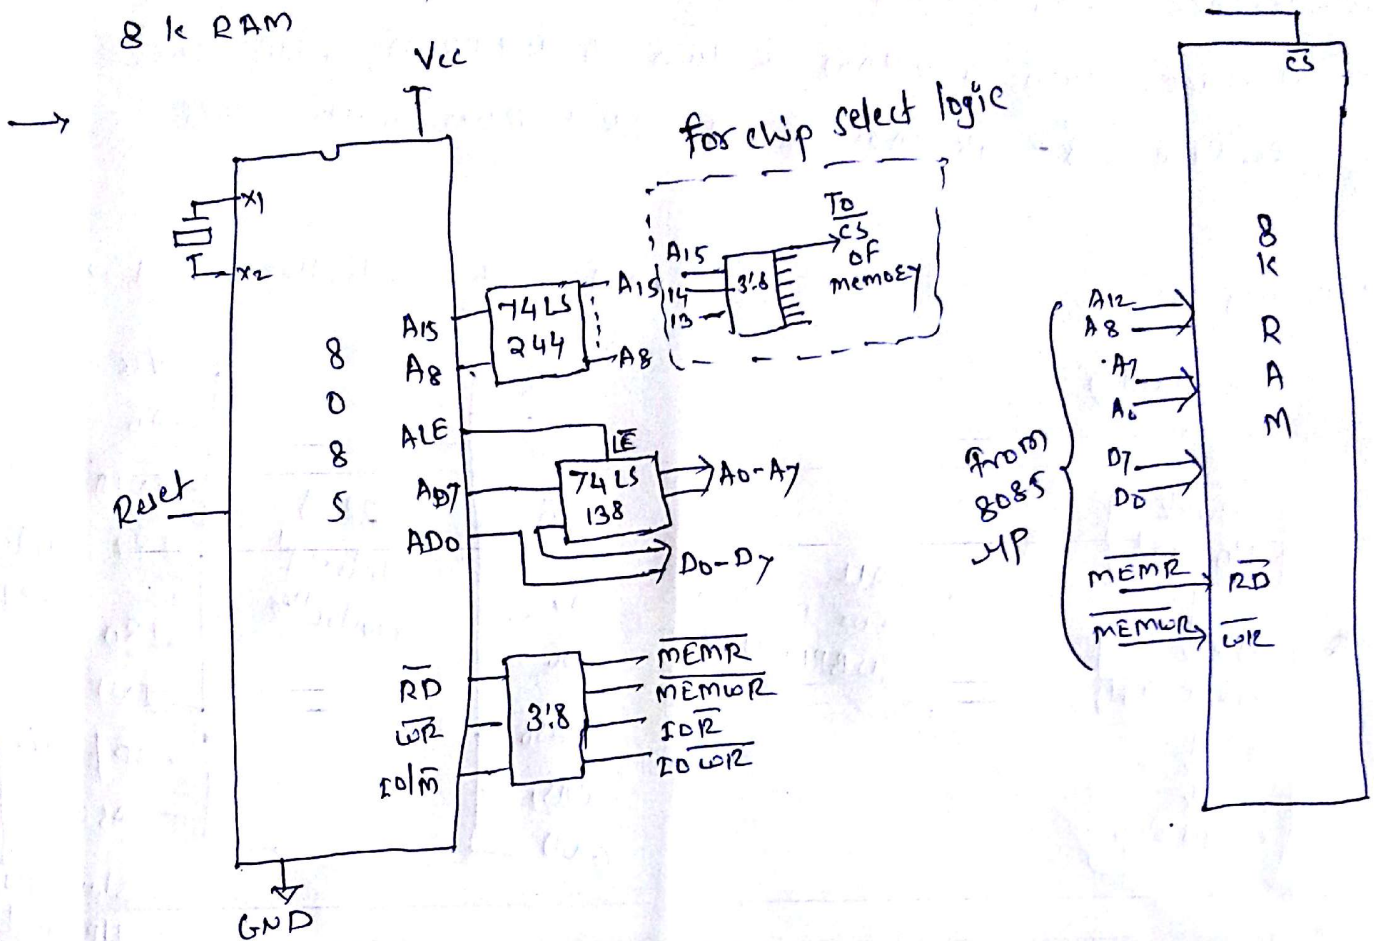 8 K RAM
Vcc
For chip select logic
X1
X2
8
0
8
5
Reset
A15
A8
74LS
244
A15
A8
A15
14
13
3:8
TO
C̅S̅
OF
MEMORY
ALE
L̅E̅
AD7
AD0
74LS
138
A0-A7
D0-D7
R̅D̅
W̅R̅
IO/M̅
3:8
M̅E̅M̅R̅
M̅E̅M̅W̅R̅
IOR̅
IOW̅R̅
GND
C̅S̅
8
K
R
A
M
From
8085
μP
A12
A8
A7
A0
D7
D0
M̅E̅M̅R̅
R̅D̅
M̅E̅M̅W̅R̅
W̅R̅